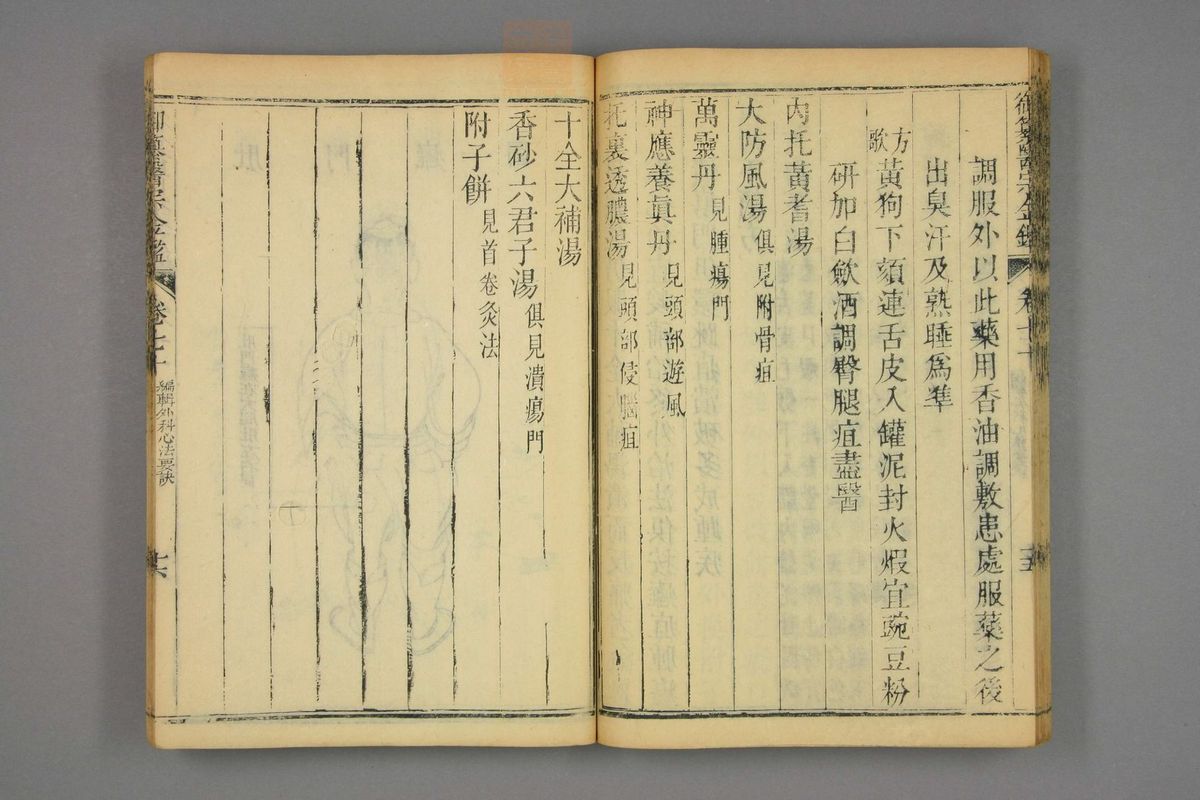 御纂醫宗金鑑
卷七十
十五
調服外以此藥用香油調敷患處服藥之後
出臭汗及熟睡爲準
方歌
黃狗下頦連舌皮入罐泥封火煆宜豌豆粉
研加白蘞酒調臀腿疽盡醫
內托黃耆湯
大防風湯俱見附骨疽
萬靈丹見腫瘍門
神應養眞丹見頭部遊風
托裏透膿湯見頭部侵腦疽
十全大補湯
香砂六君子湯俱見潰瘍門
附子餅見首卷灸法
御纂醫宗金鑑
卷七十
編輯外科心法要訣
十六